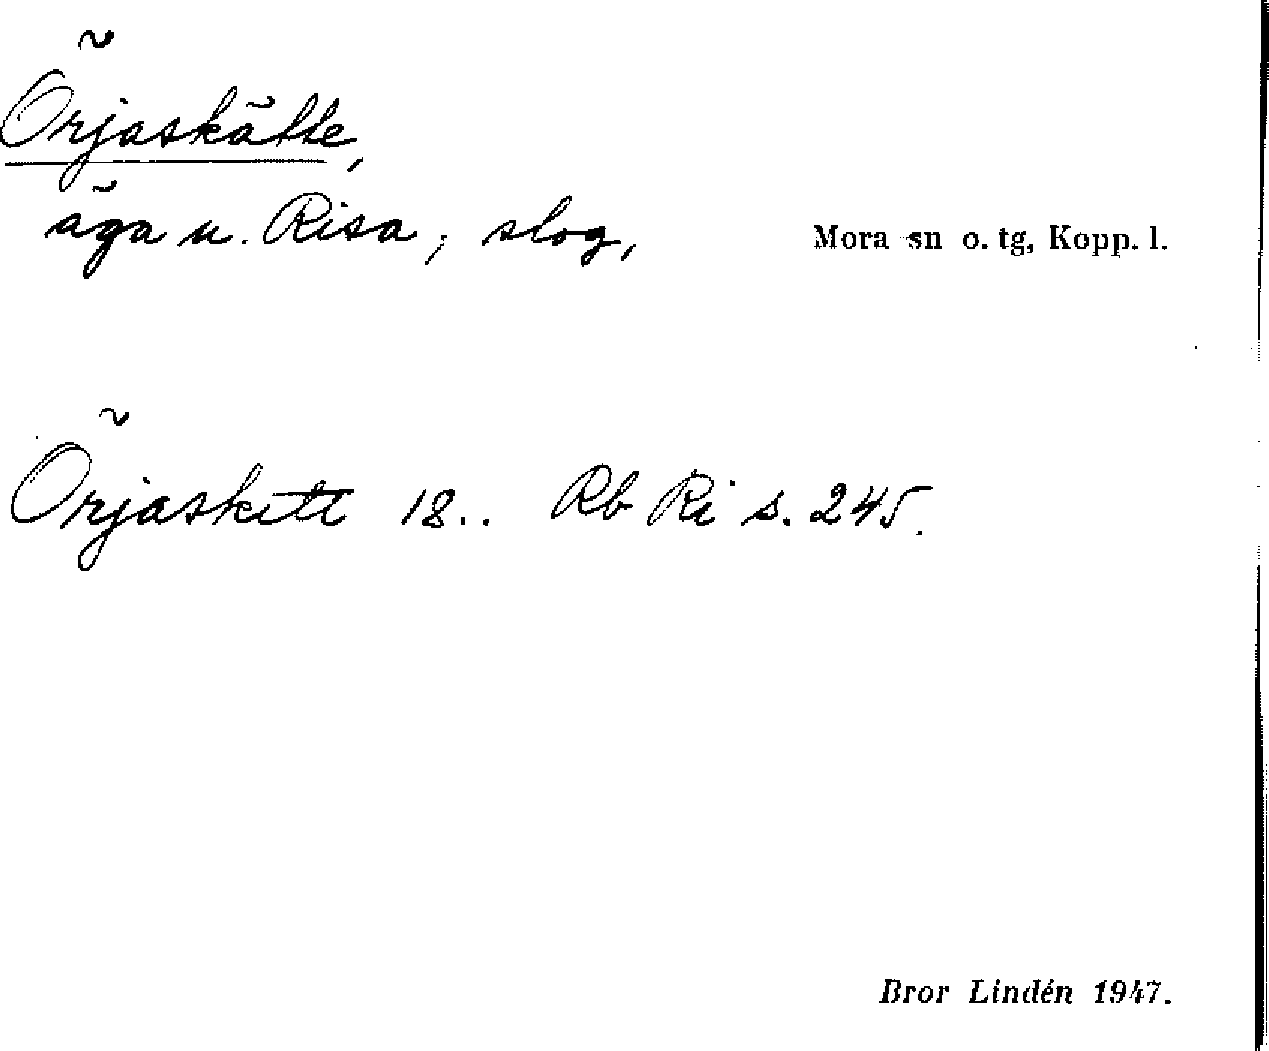 Örjaskätte,
äga u. Risa; slog,
Mora sn o. tg, Kopp. l.
Örjaskett 18.. Rb Ri s. 245.
Bror Lindén 1947.